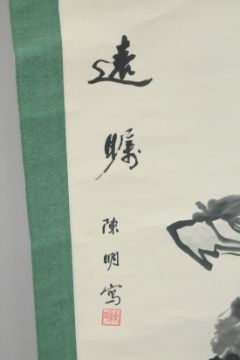 遠
瞩
陳明寫